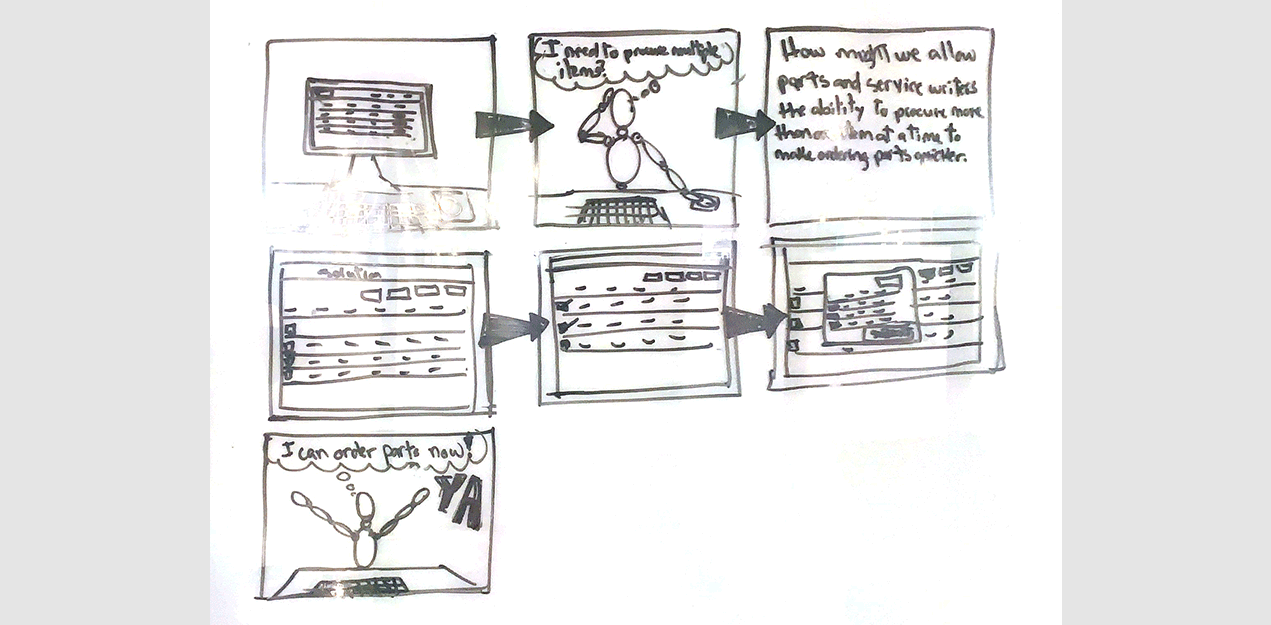 I need to procure multiple
items?
How might we allow
parts and service writers
the ability to procure more
than item at a time to
make ordering parts quicker.
solution
I can order parts now!
YA